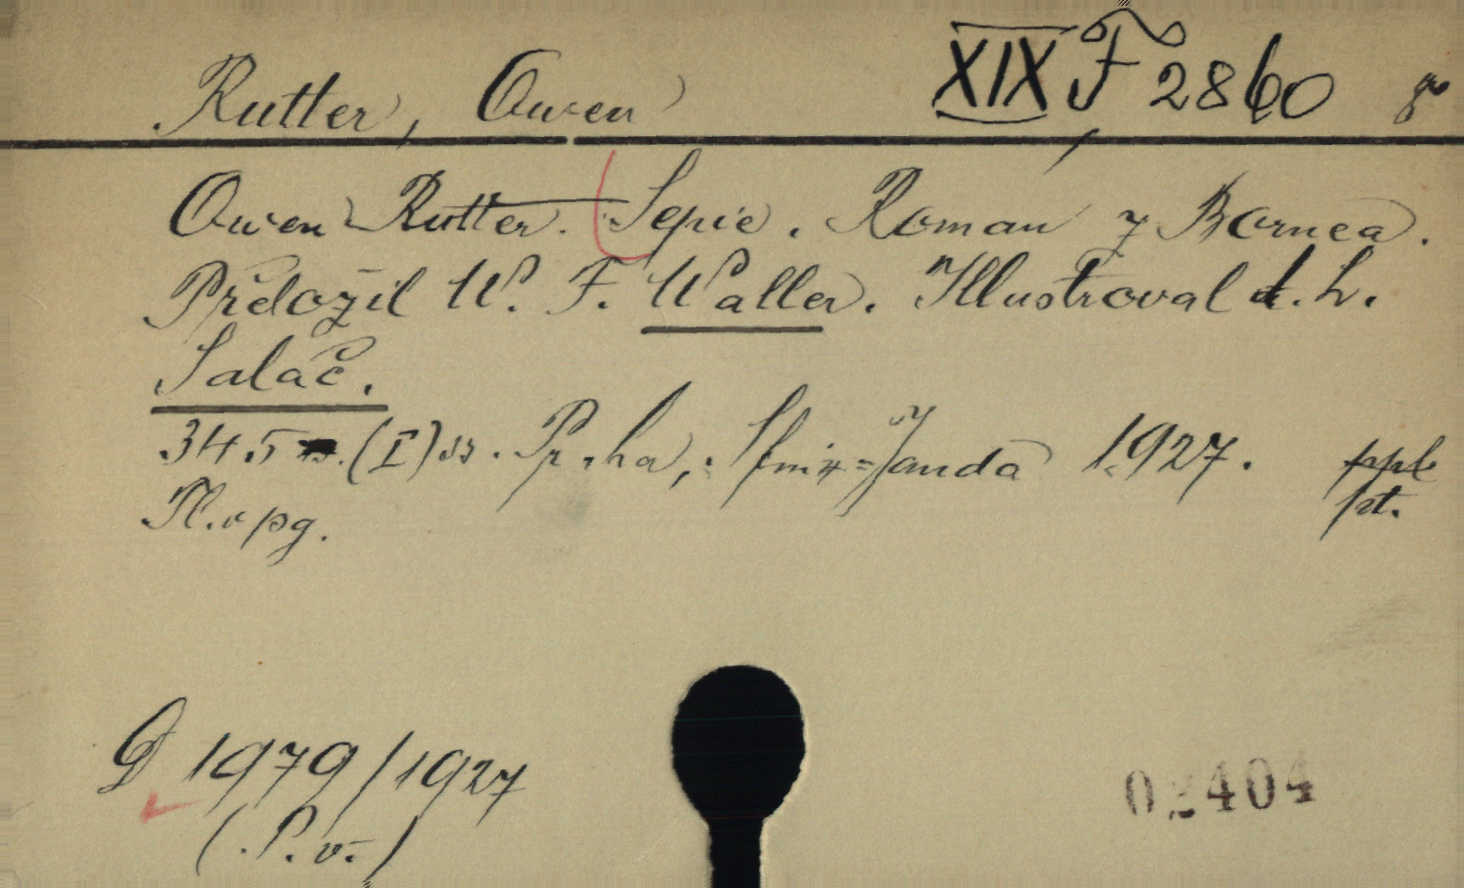 Rutter, Owen XIX F 2860 8°
Owen Rutter. Sepie. Roman z Bornea.
Přeložil W. F. Waller. Illustroval L.
Salač.
345 (I) ss. Praha, Janda 1927. ppb
Pl. v pg. pt.
D 1979/1927
(P. v.)
02404